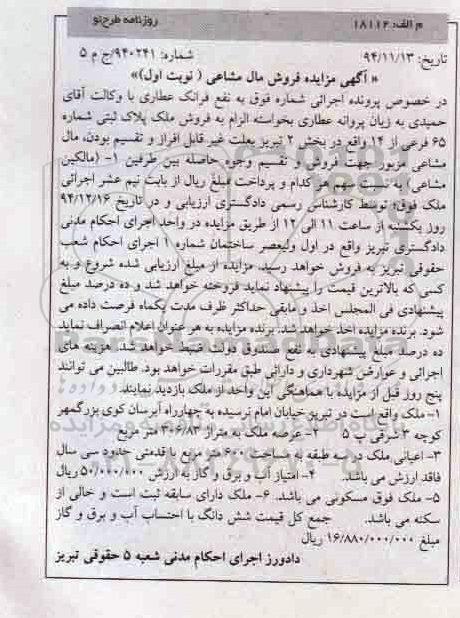 م الف: ۱۸۱۱۴ روزنامه طرح‌نو
تاریخ: ۹۴/۱۱/۱۳ شماره: ۹۴۰۲۴۱/ج م ۵
« آگهی مزایده فروش مال مشاعی ( نوبت اول)»
در خصوص پرونده اجرائی شماره فوق به نفع فرانک عطاری با وکالت آقای
حمیدی به زیان پروانه عطاری بخواسته الزام به فروش ملک پلاک ثبتی شماره
۶۵ فرعی از ۱۴ واقع در بخش ۲ تبریز بعلت غیر قابل افراز و تقسیم بودن، مال
مشاعی مزبور جهت فروش و تقسیم وجوه حاصله بین طرفین ۱- (مالکین
مشاعی) به نسبت سهم هر کدام و پرداخت مبلغ ریال از بابت نیم عشر اجرائی
ملک فوق، توسط کارشناس رسمی دادگستری ارزیابی و در تاریخ ۹۴/۱۲/۱۶
روز یکشنبه از ساعت ۱۱ الی ۱۲ از طریق مزایده در واحد اجرای احکام مدنی
دادگستری تبریز واقع در اول ولیعصر ساختمان شماره ۱ اجرای احکام شعب
حقوقی تبریز به فروش خواهد رسید. مزایده از مبلغ ارزیابی شده شروع و به
کسی که بالاترین قیمت را پیشنهاد نماید فروخته خواهد شد و ده درصد مبلغ
پیشنهادی فی المجلس اخذ و مابقی حداکثر ظرف مدت یکماه فرصت داده می
شود. برنده مزایده اخذ خواهد شد. برنده مزایده به هر عنوان اعلام انصراف نماید
ده درصد مبلغ پیشنهادی به نفع صندوق دولت ضبط خواهد شد. هزینه های
اجرائی و عوارض شهرداری و دارائی طبق مقررات خواهد بود. طالبین می توانند
پنج روز قبل از مزایده با هماهنگی این واحد از ملک بازدید نمایند.
۱- ملک واقع است در تبریز خیابان امام نرسیده به چهارراه آبرسان کوی بزرگمهر
کوچه ۳ شرقی پ ۵ ۲- عرصه ملک به متراژ ۳۰۶/۸۳ متر مربع
۳- اعیانی ملک در سه طبقه به مساحت ۶۰۰ متر مربع با قدمتی حدود سی سال
فاقد ارزش می باشد. ۴- امتیاز آب و برق و گاز به ارزش ۵۰/۰۰۰/۰۰۰ ریال
۵- ملک فوق مسکونی می باشد. ۶- ملک دارای سابقه ثبت است و خالی از
سکنه می باشد. جمع کل قیمت شش دانگ با احتساب آب و برق و گاز
مبلغ ۱۶/۸۸۰/۰۰۰/۰۰۰ ریال
دادورز اجرای احکام مدنی شعبه ۵ حقوقی تبریز